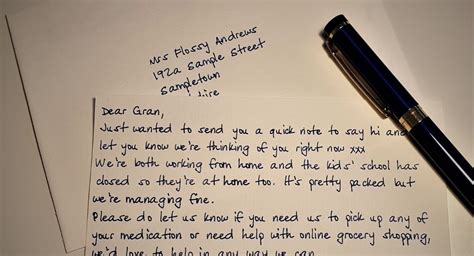 Mrs Flossy Andrews
192a Sample Street
Sampletown
Dear Gran,
Just wanted to send you a quick note to say hi and
let you know we're thinking of you right now xxx
We're both working from home and the kids' school has
closed so they're at home too. It's pretty packed but
we're managing fine.
Please do let us know if you need us to pick up any of
your medication or need help with online grocery shopping,
we'd love to help in any way we can